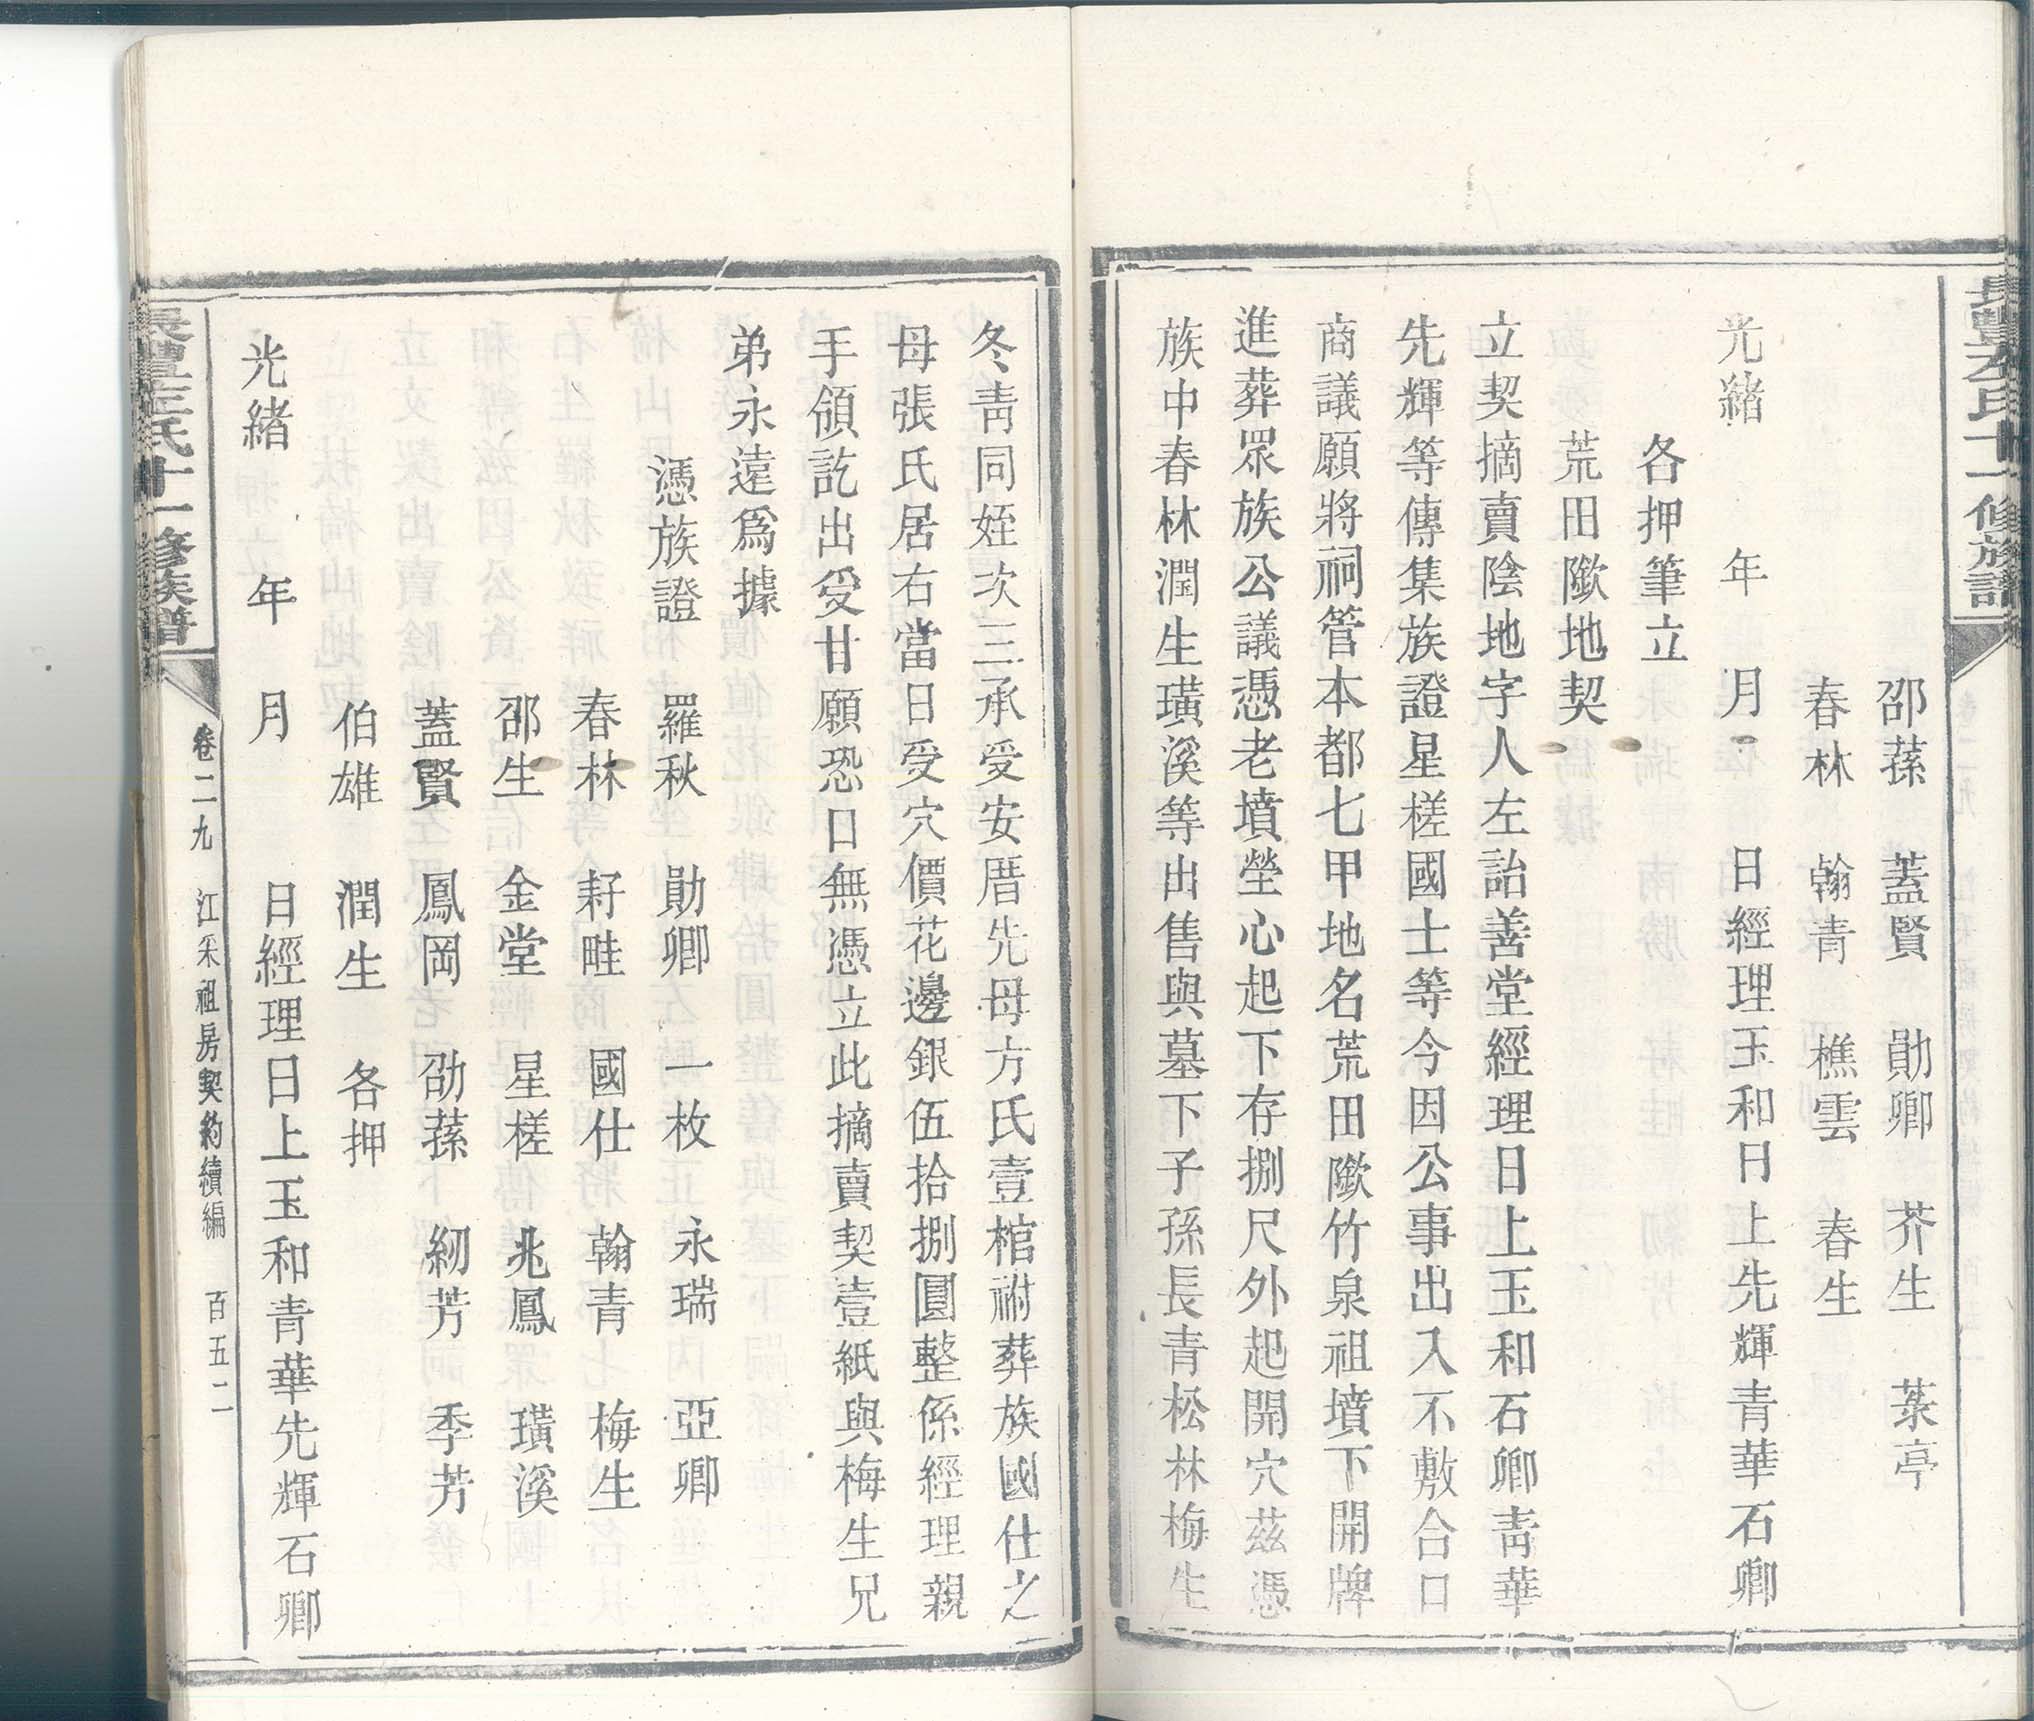 長豐左氏十一修族譜
邵蓀 蓋賢 勛卿 芥生 菉亭
春林 翰青 樵雲 春生
光緒 年 月 日經理玉和日上先輝青華石卿
各押筆立
荒田歘地契
立契摘賣陰地字人左詒善堂經理日上玉和石卿青華
先輝等傳集族證星槎國士等今因公事出入不敷合口
商議願將祠管本都七甲地名荒田歘竹泉祖墳下開牌
進葬眾族公議憑老墳塋心起下存捌尺外起開穴茲憑
族中春林潤生璜溪等出售與墓下子孫長青松林梅生
冬青同姪次三承受安厝先母方氏壹棺祔葬族國仕之
母張氏居右當日受穴價花邊銀伍拾捌圓整係經理親
手領訖出受甘願恐口無憑立此摘賣契壹紙與梅生兄
弟永遠為據
憑族證 羅秋 勛卿 一枚 永瑞 亞卿
春林 耔畦 國仕 翰青 梅生
邵生 金堂 星槎 兆鳳 璜溪
蓋賢 鳳岡 劭蓀 紉芳 季芳
伯雄 潤生 各押
光緒 年 月 日經理日上玉和青華先輝石卿
長豐左氏十一修族譜 卷二九 江采祖房契約續編 百五二